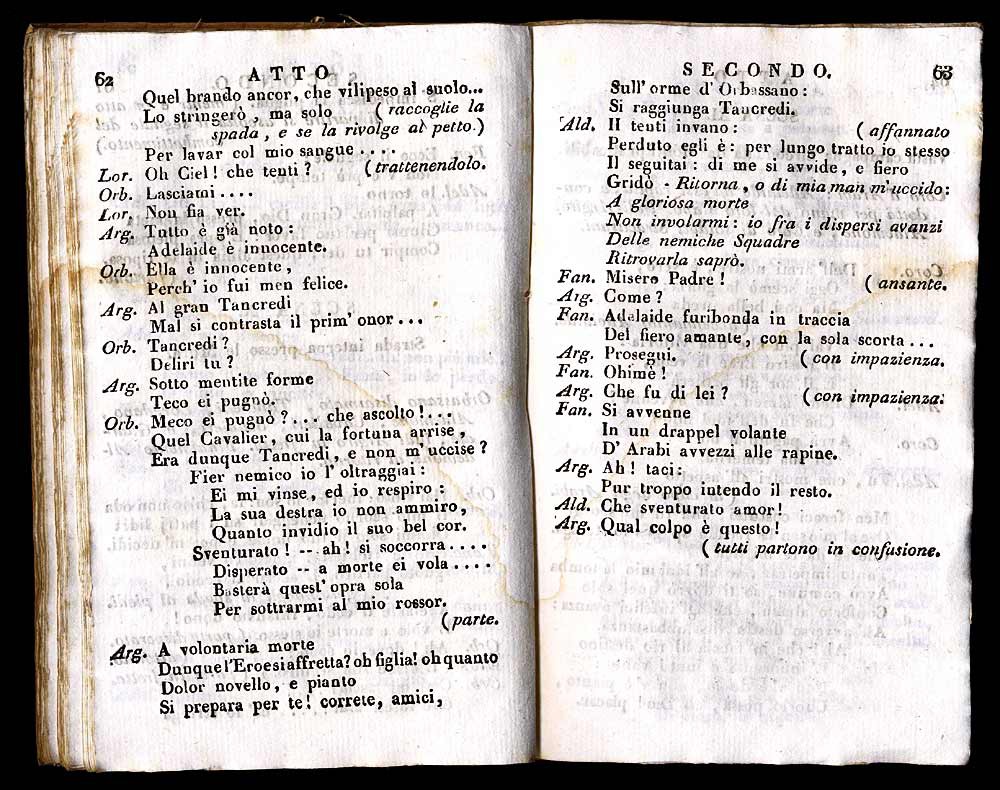 62 ATTO
Quel brando ancor, che vilipeso al suolo...
Lo stringerò, ma solo (raccoglie la
spada, e se la rivolge al petto.)
Per lavar col mio sangue ....
Lor. Oh Ciel! che tenti? (trattenendolo.
Orb. Lasciami ....
Lor. Non fia ver.
Arg. Tutto è già noto:
Adelaide è innocente.
Orb. Ella è innocente,
Perch' io fui men felice.
Arg. Al gran Tancredi
Mal si contrasta il prim' onor ...
Orb. Tancredi?
Deliri tu?
Arg. Sotto mentite forme
Teco ei pugnò.
Orb. Meco ei pugnò?... che ascolto!...
Quel Cavalier, cui la fortuna arrise,
Era dunque Tancredi, e non m'uccise?
Fier nemico io l'oltraggiai:
Ei mi vinse, ed io respiro:
La sua destra io non ammiro,
Quanto invidio il suo bel cor.
Sventurato! -- ah! si soccorra....
Disperato -- a morte ei vola ....
Basterà quest' opra sola
Per sottrarmi al mio rossor.
(parte.
Arg. A volontaria morte
Dunque l'Eroe si affretta? oh figlia! oh quanto
Dolor novello, e pianto
Si prepara per te! correte, amici,
SECONDO. 63
Sull' orme d' Orbassano:
Si raggiunga Tancredi.
Ald. Il tenti invano: (affannato
Perduto egli è: per lungo tratto io stesso
Il seguitai: di me si avvide, e fiero
Gridò - Ritorna, o di mia man m'uccido:
A gloriosa morte
Non involarmi: io fra i dispersi avanzi
Delle nemiche Squadre
Ritrovarla saprò.
Fan. Misero Padre! (ansante.
Arg. Come?
Fan. Adelaide furibonda in traccia
Del fiero amante, con la sola scorta ...
Arg. Prosegui. (con impazienza.
Fan. Ohimè!
Arg. Che fu di lei? (con impazienza.
Fan. Si avvenne
In un drappel volante
D' Arabi avvezzi alle rapine.
Arg. Ah! taci:
Pur troppo intendo il resto.
Ald. Che sventurato amor!
Arg. Qual colpo è questo!
(tutti partono in confusione.